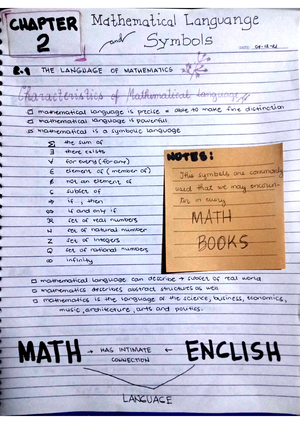 CHAPTER 2
Mathematical Languange
and Symbols
DATE
2.1 THE LANGUAGE OF MATHEMATICS
Characteristics of Mathematical language
□ mathematical language is precise → able to make fine distinction
□ mathematical language is powerful
□ mathematical language is a symbolic language
Σ the sum of
∃ there exists
∀ for every (for any)
∈ element of (member of)
∉ not an element of
⊆ subset of
⇒ if , then
⇔ if and only if
R set of real numbers
N set of natural number
Z set of integers
Q set of rational numbers
∞ infinity
NOTES:
This symbols are commonly
used that we may encoun-
ter in every
MATH
BOOKS
□ mathematical language can describe → subset of real world
□ mathematics describes abstract structures as well
□ mathematics is the language of the science, business, economics,
music, architecture, arts and politics.
MATH → HAS INTIMATE ← ENGLISH
CONNECTION
LANGUAGE